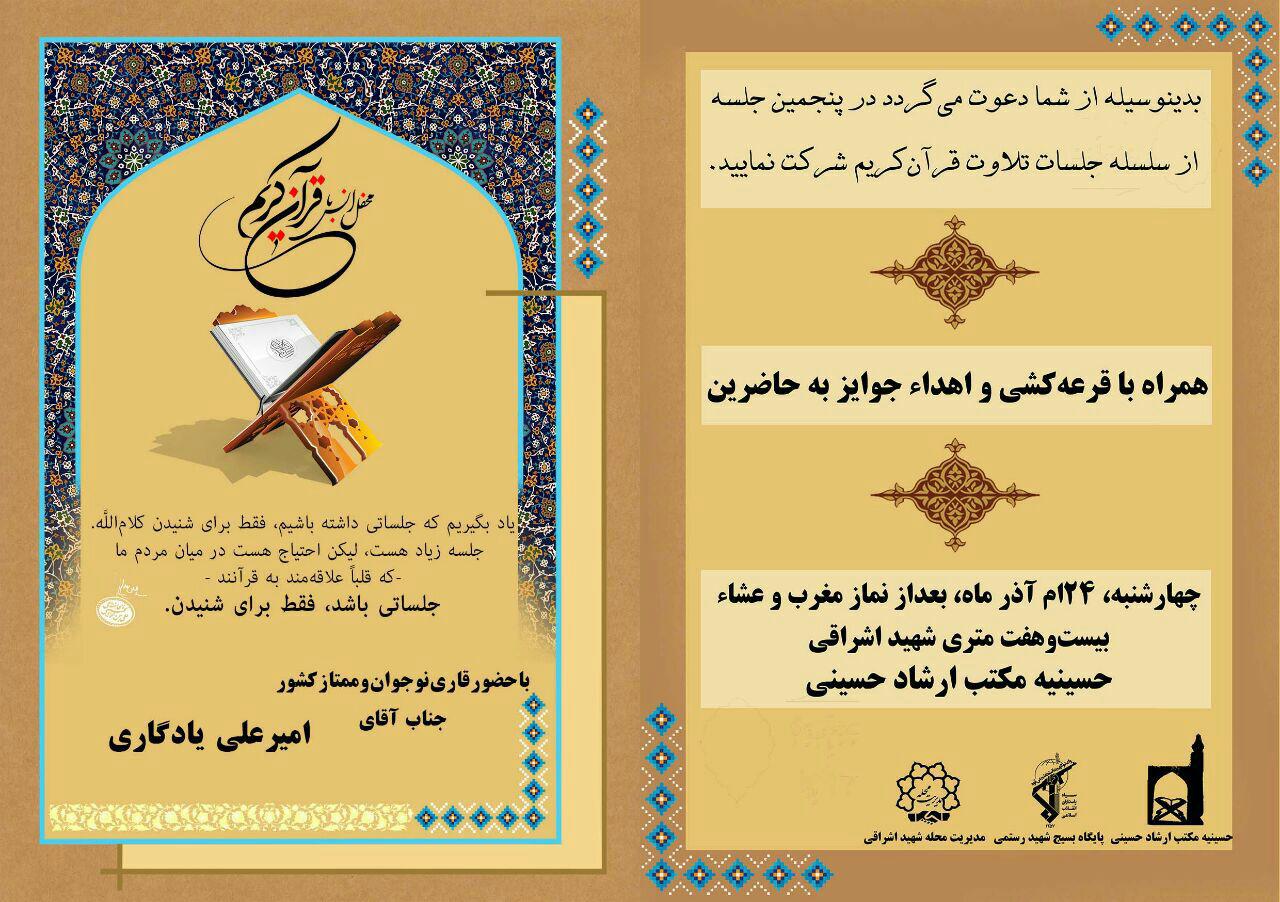 بدینوسیله از شما دعوت می‌گردد در پنجمین جلسه
از سلسله جلسات تلاوت قرآن‌کریم شرکت نمایید.
همراه با قرعه‌کشی و اهداء جوایز به حاضرین
چهارشنبه، ۲۴ام آذر ماه، بعداز نماز مغرب و عشاء
بیست‌وهفت متری شهید اشراقی
حسینیه مکتب ارشاد حسینی
حسینیه مکتب ارشاد حسینی
سپاه
پاسداران
انقلاب
اسلامی
پایگاه بسیج شهید رستمی
مدیریت محله
مدیریت محله شهید اشراقی
محفل انس با قرآن کریم
یاد بگیریم که جلساتی داشته باشیم، فقط برای شنیدن کلام‌اللَّه.
جلسه زیاد هست، لیکن احتیاج هست در میان مردم ما
-که قلباً علاقه‌مند به قرآنند -
جلساتی باشد، فقط برای شنیدن.
باحضورقاری‌نوجوان‌وممتازکشور
جناب آقای
امیرعلی یادگاری